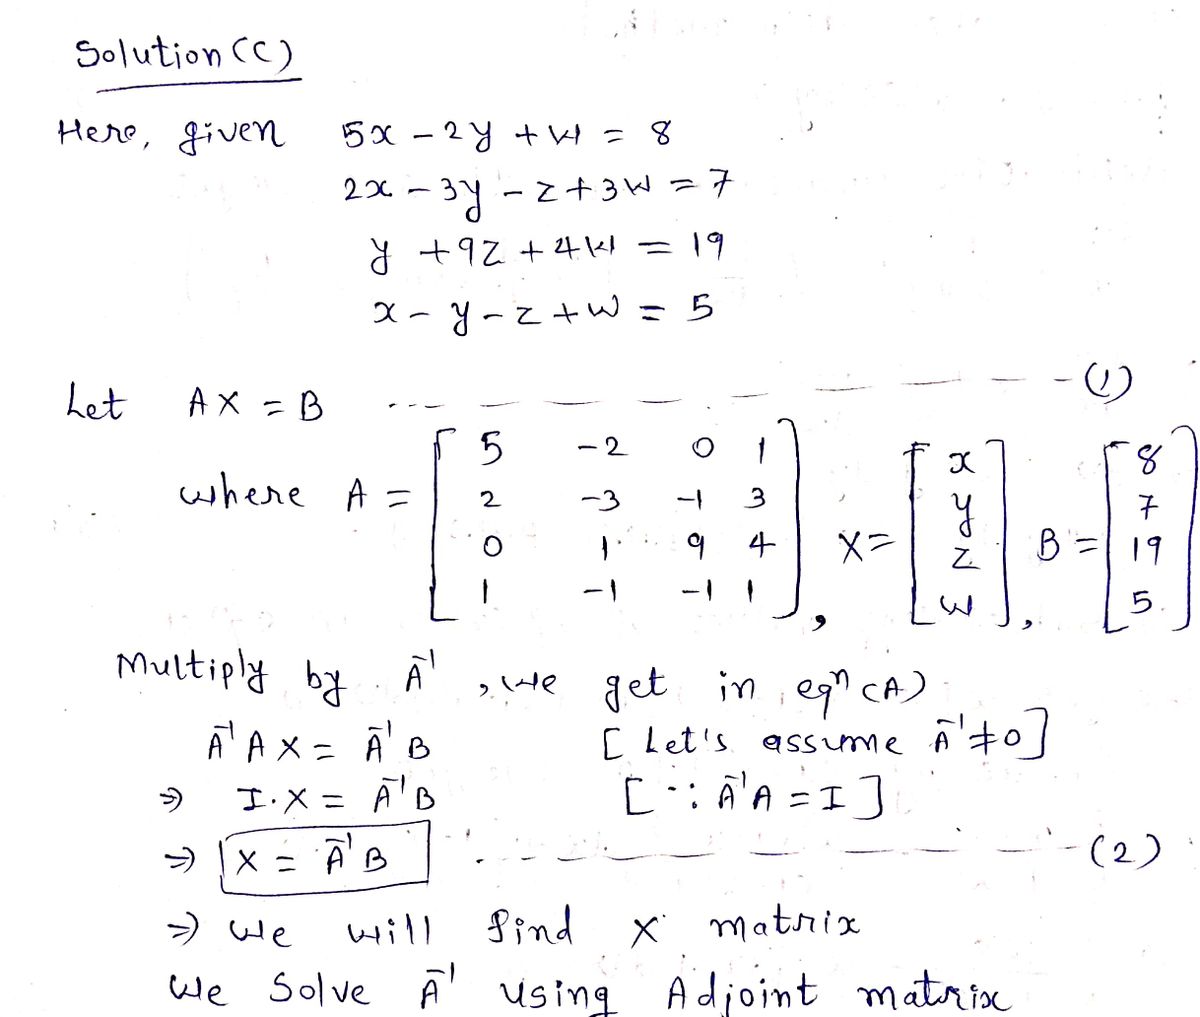 Solution (C)
Here, given 5x - 2y + w = 8
2x - 3y - z + 3w = 7
y + 9z + 4w = 19
x - y - z + w = 5
Let AX = B ---------- (1)
where A = [5 -2 0 1
2 -3 -1 3
0 1 9 4
1 -1 -1 1], X = [x
y
z
w], B = [8
7
19
5]
Multiply by A⁻¹, we get in eqⁿ (A)
A⁻¹ A X = A⁻¹ B [Let's assume A⁻¹ ≠ 0]
⇒ I·X = A⁻¹B [∵ A⁻¹A = I]
⇒ X = A⁻¹B ---------- (2)
⇒ we will find X matrix
we Solve A⁻¹ using Adjoint matrix